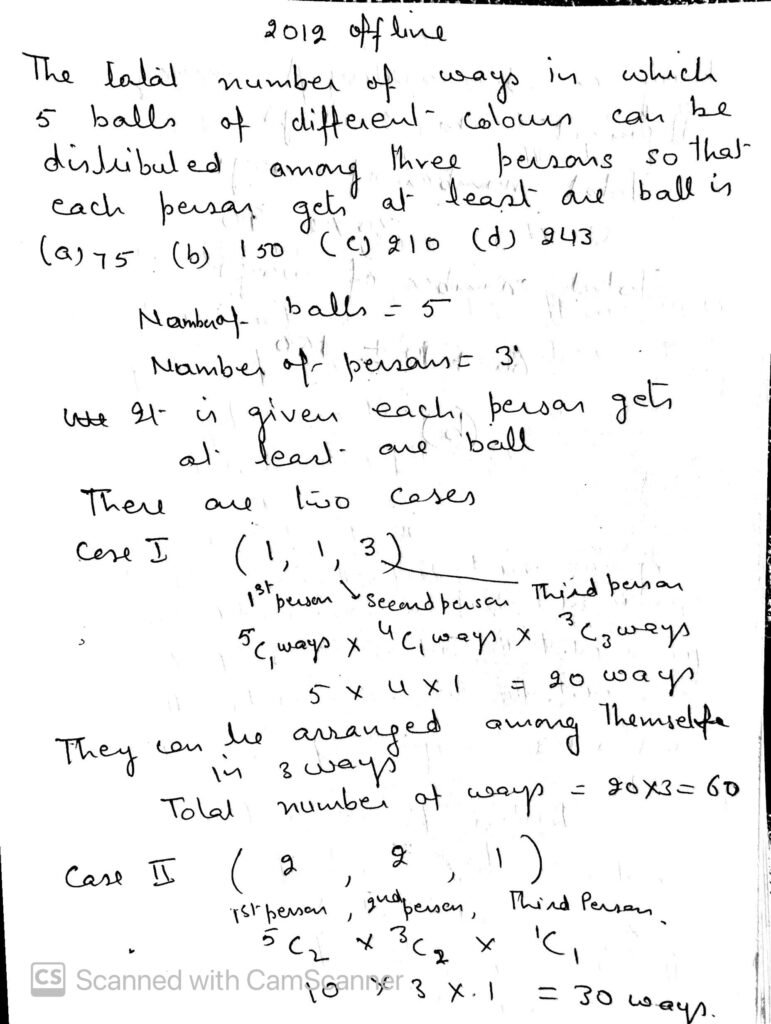 2012 offline
The total number of ways in which
5 balls of different colours can be
distributed among three persons so that
each person gets at least one ball is
(a) 75 (b) 150 (c) 210 (d) 243
Number of balls = 5
Number of persons = 3
It is given each person gets
at least one ball
There are two cases
Case I (1, 1, 3)
1st person second person Third person
⁵C₁ ways x ⁴C₁ ways x ³C₃ ways
5 x 4 x 1 = 20 ways
They can be arranged among Themselfe
in 3 ways
Total number of ways = 20x3 = 60
Case II (2, 2, 1)
1st person, 2nd person, Third Person.
⁵C₂ x ³C₂ x ¹C₁
10 x 3 x 1 = 30 ways.
CS Scanned with CamScanner